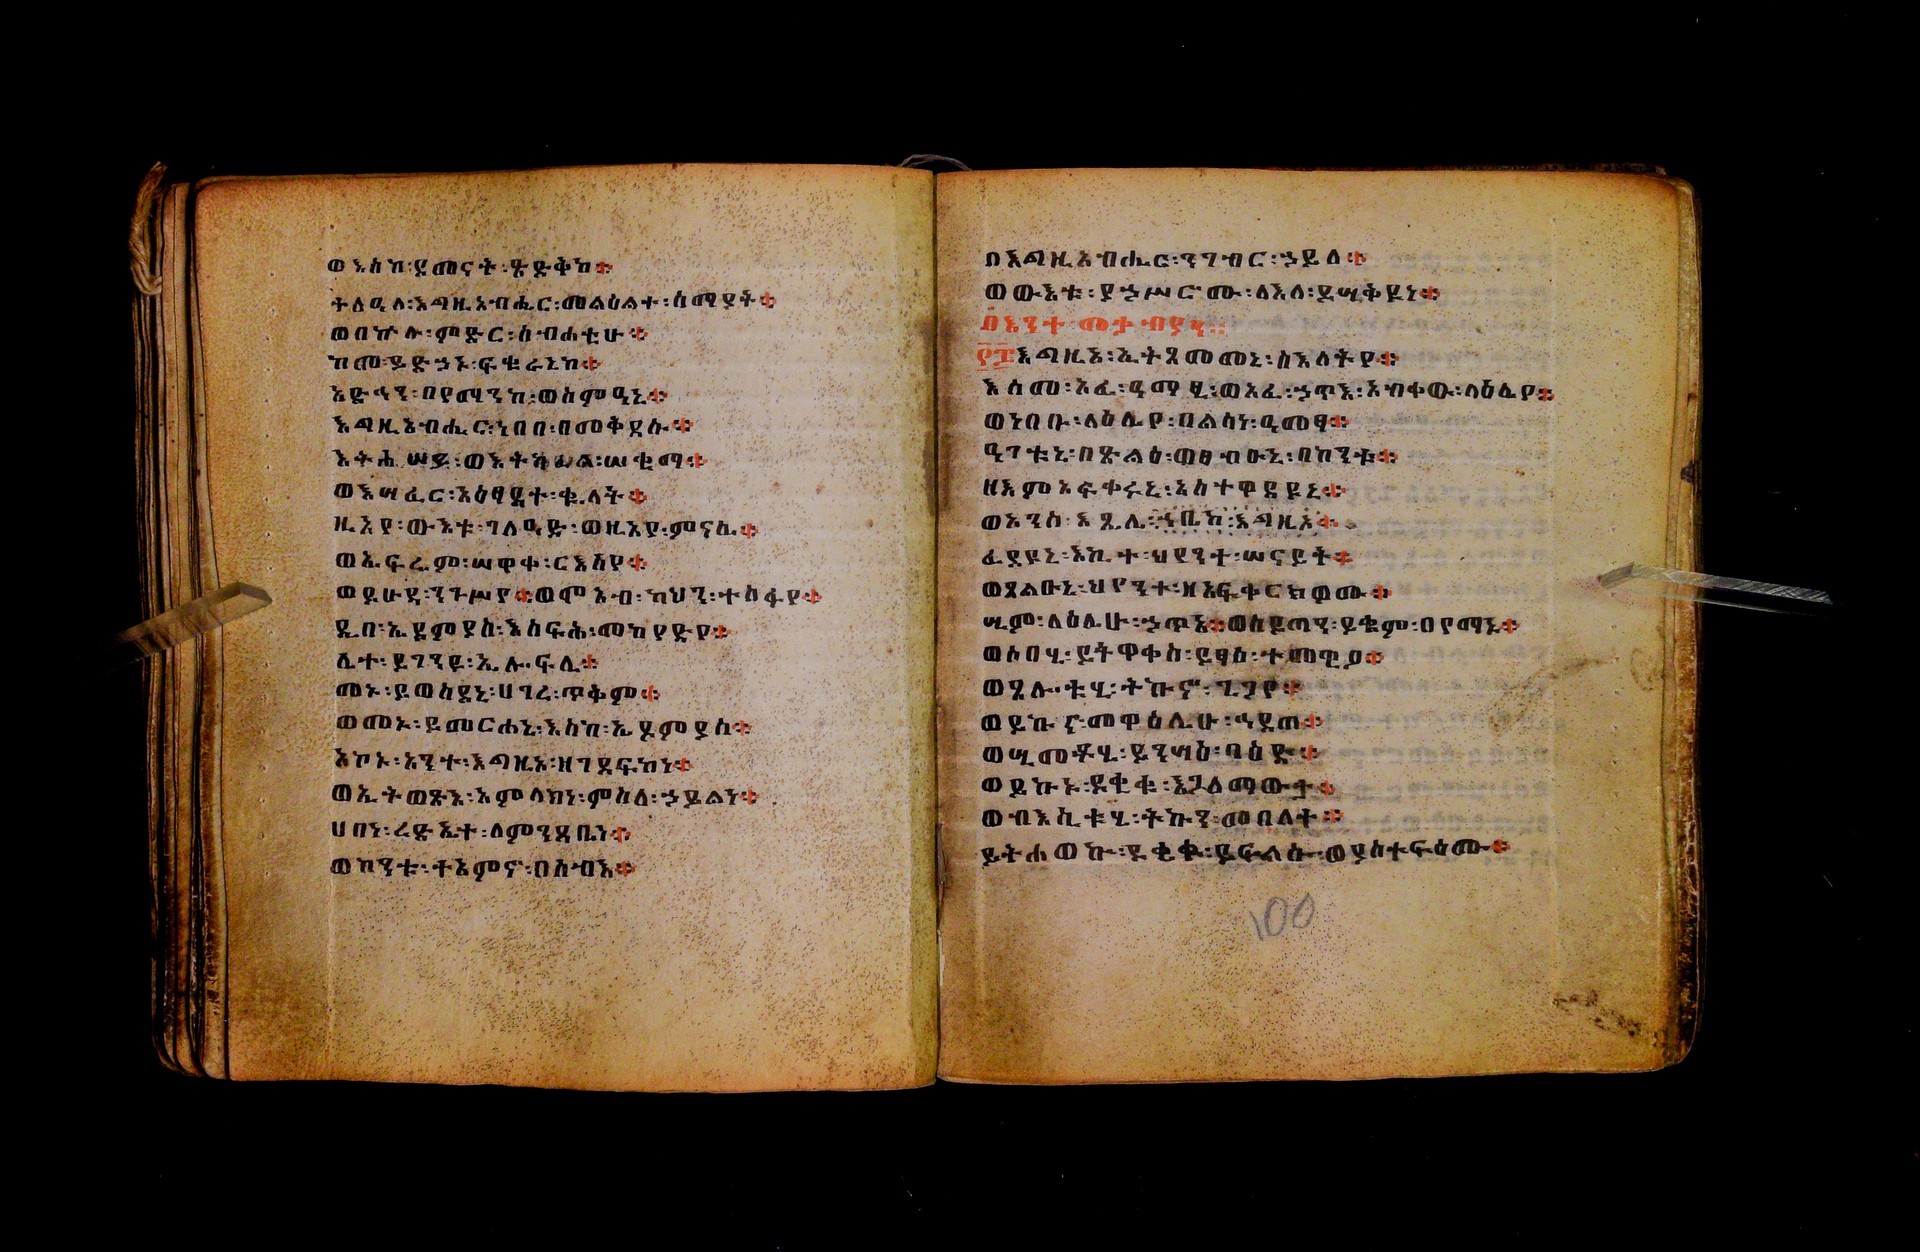 ወእስከ፡ደመናት፡ጽድቅከ፨
ተለዓለ፡እግዚአብሔር፡መልዕልተ፡ሰማያት፨
ወበኵሉ፡ምድር፡ስብሐቲሁ፨
ከመ፡ይድኃኑ፡ፍቁራኒከ፨
አድኅን፡በየማንከ፡ወስምዓኒ፨
እግዚአብሔር፡ነበበ፡በመቅደሱ፨
እትሐሠይ፡ወእትካፈል፡ሠቂማ፨
ወእሣፈር፡አዕፃዳተ፡ቄላት፨
ዚአየ፡ውእቱ፡ገለዓድ፡ወዚአየ፡ምናሴ፨
ወኤፍሬም፡ሠዋቀ፡ርእስየ፨
ወይሁዳ፡ንጉሥየ፨ወሞአብ፡ከህን፡ተስፋየ፨
ዲበ፡ኤዶምያስ፡እሰፍሕ፡መከየድየ፨
ሊተ፡ይገንዩ፡ኢሎፍሊ፨
መኑ፡ይወስደኒ፡ሀገረ፡ጥቅም፨
ወመኑ፡ይመርሐኒ፡እስከ፡ኤዶምያስ፨
አኮኑ፡አንተ፡እግዚኦ፡ዘገደፍከነ፨
ወኢትወጽእ፡አምላክነ፡ምስለ፡ኃይልነ፨
ሀበነ፡ረድኤተ፡ለምንዳቤነ፨
ወከንቱ፡ተአምኖ፡በሰብእ፨
በእግዚአብሔር፡ንገብር፡ኃይለ፨
ወውእቱ፡ያኃሥሮሙ፡ለእለ፡ይሣቅዩነ፨
በእንተ፡መታብያን፡፡
፻፰እግዚኦ፡ኢትጸመመኒ፡ስእለትየ፨
እስመ፡አፈ፡ዓማፂ፡ወአፈ፡ኃጥእ፡አብቀው፡ላዕሌየ፨
ወነበቡ፡ላዕሌየ፡በልሳነ፡ዓመፃ፨
ዓገቱኒ፡በጽልዕ፡ወፀብዑኒ፡በከንቱ፨
ዘእምአፍቀሩኒ፡አስተዋደዩኒ፨
ወአንሰ፡እጼሊ፡ኀቤከ፡እግዚኦ፨
ፈደዩኒ፡እኪተ፡ህየንተ፡ሠናይት፨
ወጸልዑኒ፡ህየንተ፡ዘአፍቀርክዎሙ፨
ሢም፡ላዕሌሁ፡ኃጥአ፨ወሰይጣን፡ይቁም፡በየማኑ፨
ወሶበሂ፡ይትዋቀስ፡ይፃእ፡ተመዊዖ፨
ወጸሎቱሂ፡ትኩኖ፡ጌጋየ፨
ወይኩና፡መዋዕሊሁ፡ኅዳጠ፨
ወሢመቶሂ፡ይንሣእ፡ባዕድ፨
ወይኩኑ፡ደቂቁ፡እጓለ፡ማውታ፨
ወብእሲቱሂ፡ትኩን፡መበለተ፨
ይትሐወኩ፡ደቂቁ፡ይፍልሱ፡ወያስተፍዕሙ፨
100